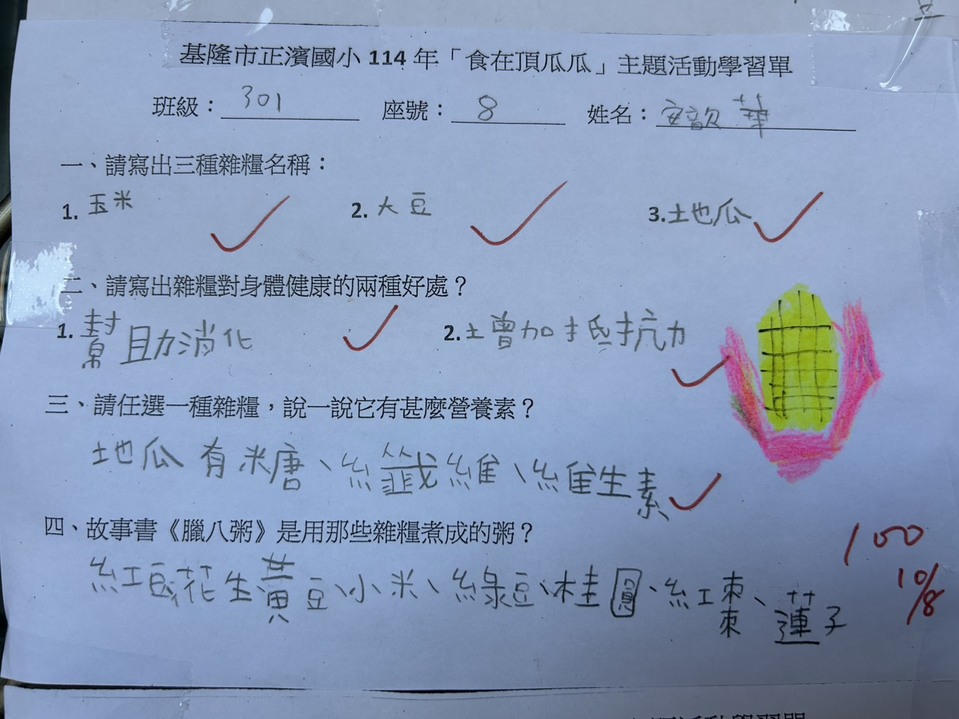 基隆市正濱國小 114 年「食在頂瓜瓜」主題活動學習單
班級：301 座號：8 姓名：安歆華
一、請寫出三種雜糧名稱：
1. 玉米 2. 大豆 3. 土地瓜
二、請寫出雜糧對身體健康的兩種好處？
1. 幫助消化 2. 增加抵抗力
三、請任選一種雜糧，說一說它有甚麼營養素？
地瓜有糖、纖維、維生素
四、故事書《臘八粥》是用那些雜糧煮成的粥？
紅豆、花生、黃豆、小米、綠豆、桂圓、紅棗、蓮子
100
10/8